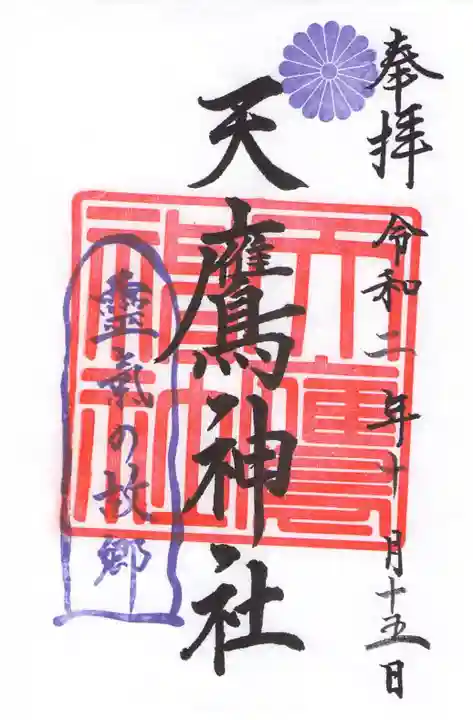 奉拝
令和二年十月十五日
天鷹神社
天鷹神社
靈氣の故郷